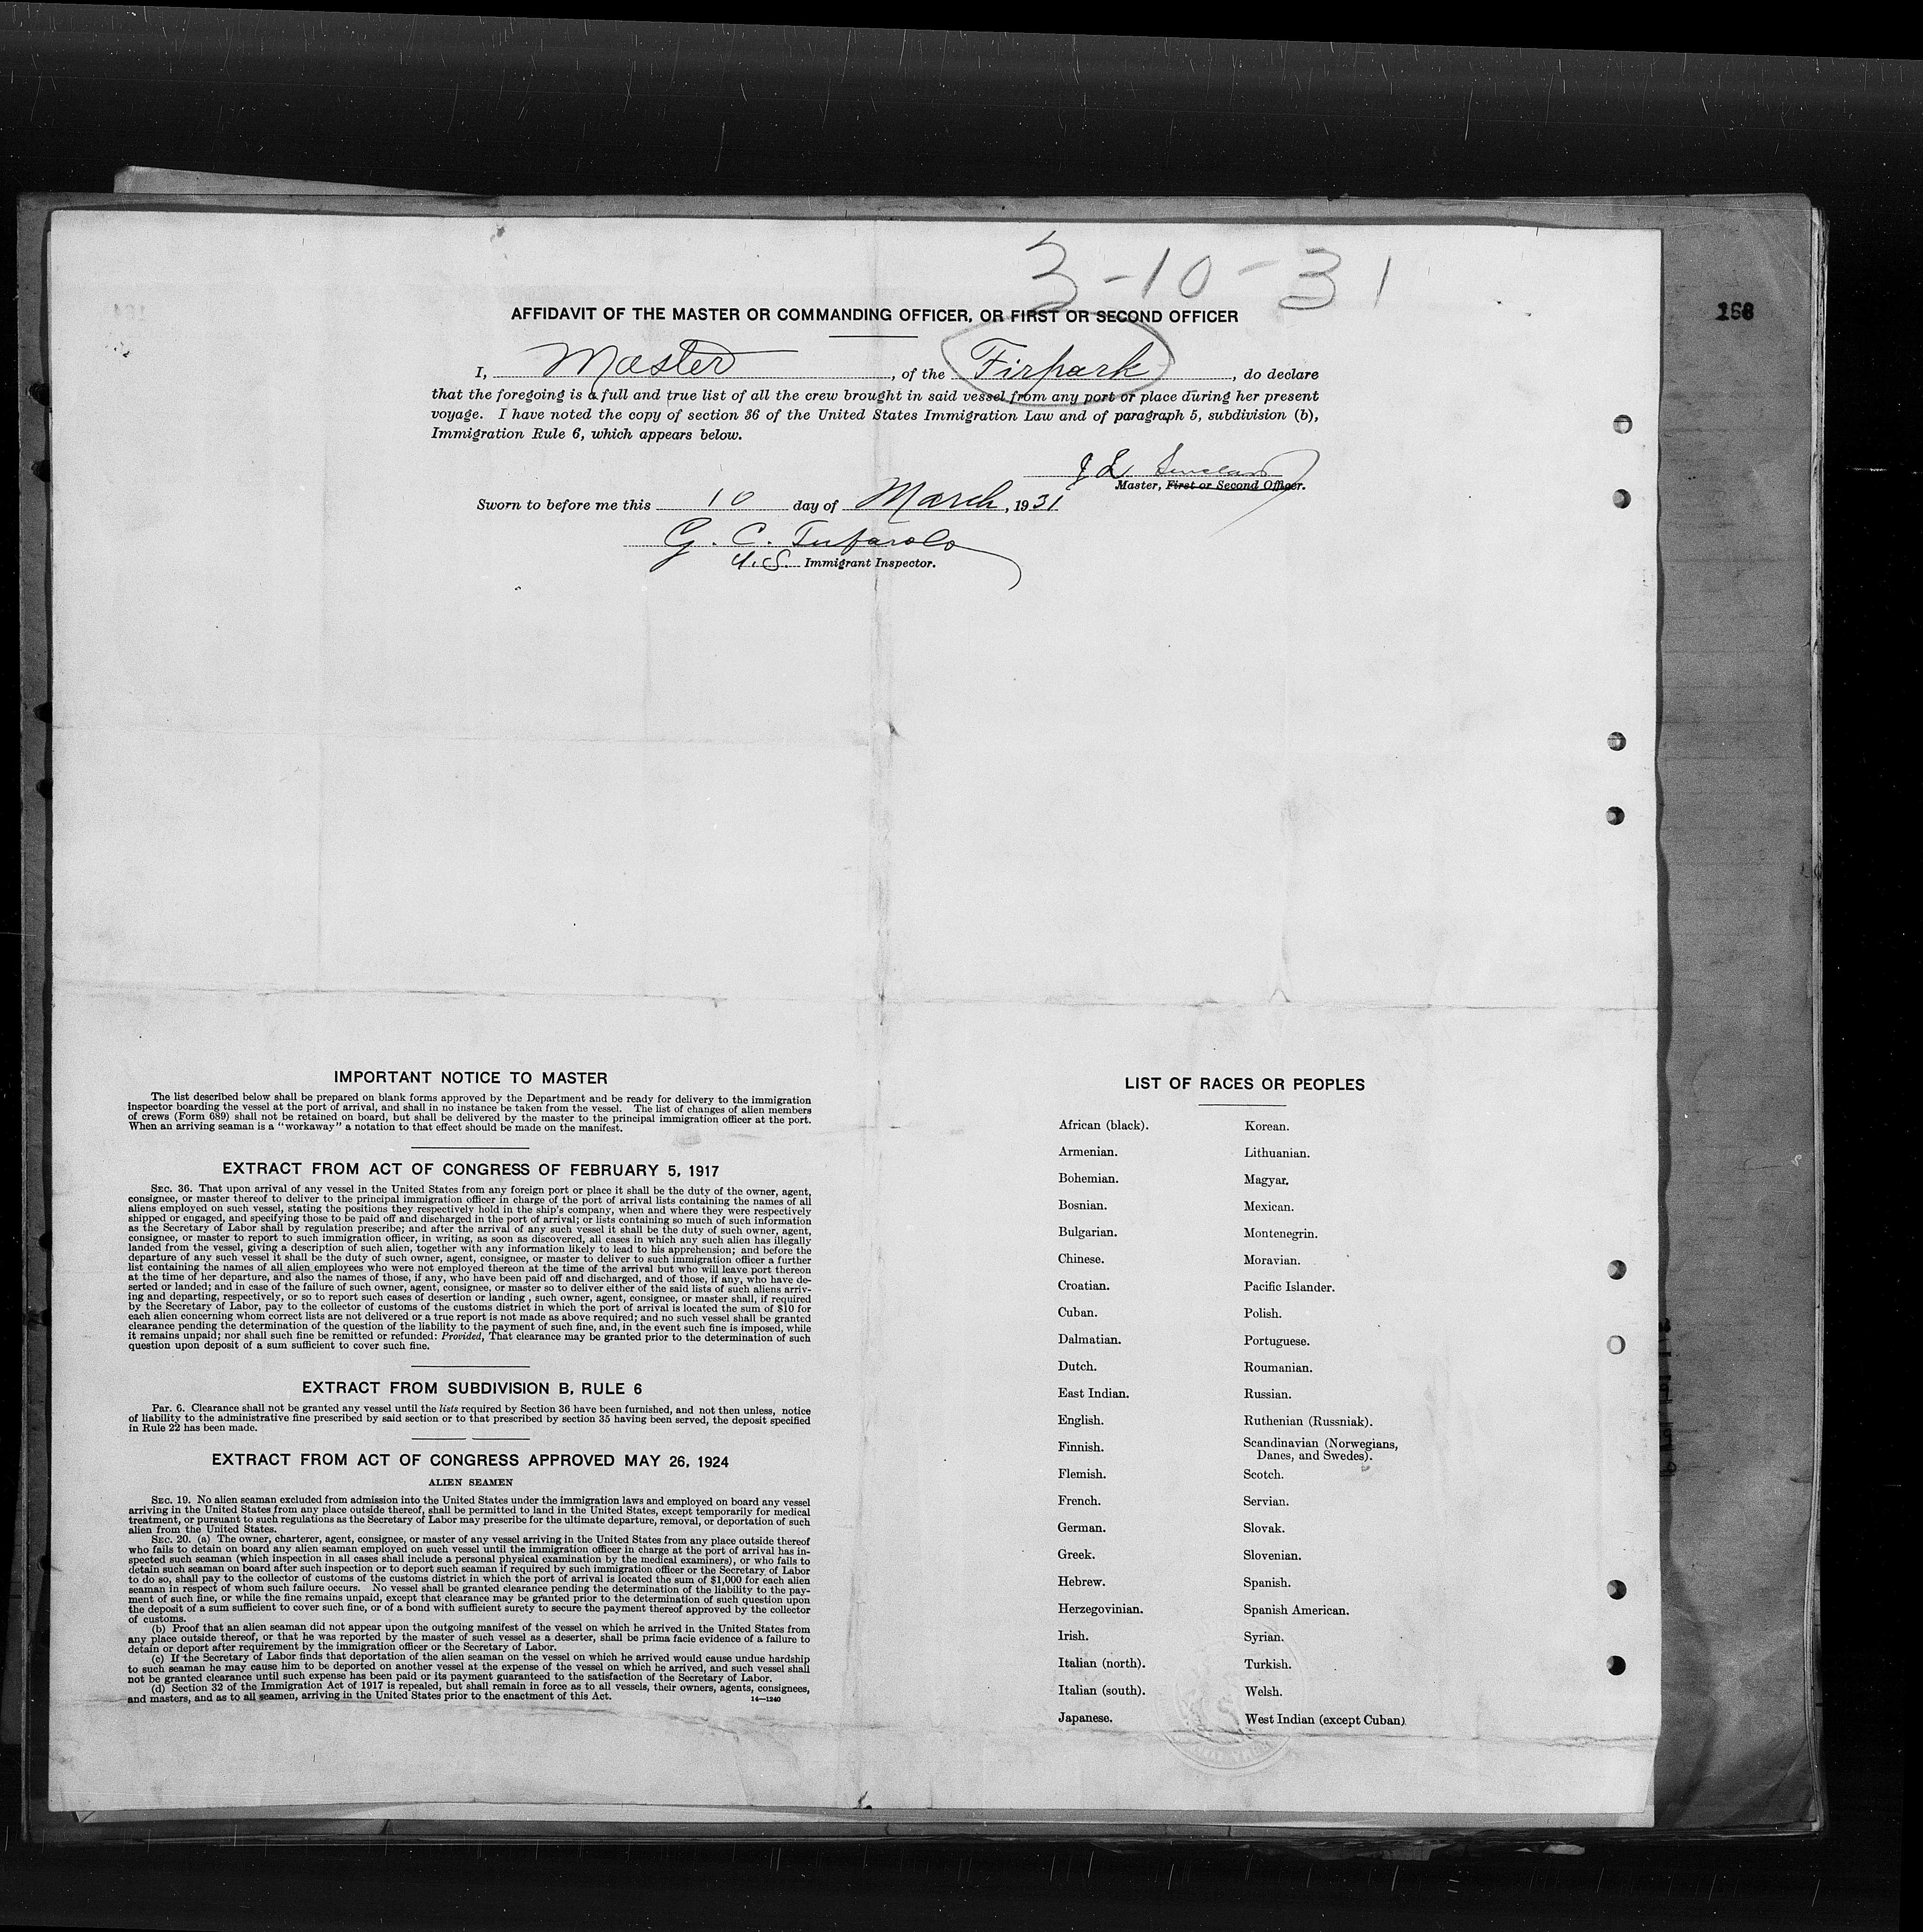 3-10-31
166
AFFIDAVIT OF THE MASTER OR COMMANDING OFFICER, OR FIRST OR SECOND OFFICER
I, Master, of the Firpark, do declare
that the foregoing is a full and true list of all the crew brought in said vessel from any port or place during her present
voyage. I have noted the copy of section 36 of the United States Immigration Law and of paragraph 5, subdivision (b),
Immigration Rule 6, which appears below.
J L Sinclair
Master, First or Second Officer.
Sworn to before me this 10 day of March, 1931
G. C.
U.S. Immigrant Inspector.
IMPORTANT NOTICE TO MASTER
The list described below shall be prepared on blank forms approved by the Department and be ready for delivery to the immigration
inspector boarding the vessel at the port of arrival, and shall in no instance be taken from the vessel. The list of changes of alien members
of crews (Form 689) shall not be retained on board, but shall be delivered by the master to the principal immigration officer at the port.
When an arriving seaman is a "workaway" a notation to that effect should be made on the manifest.
EXTRACT FROM ACT OF CONGRESS OF FEBRUARY 5, 1917
SEC. 36. That upon arrival of any vessel in the United States from any foreign port or place it shall be the duty of the owner, agent,
consignee, or master thereof to deliver to the principal immigration officer in charge of the port of arrival lists containing the names of all
aliens employed on such vessel, stating the positions they respectively hold in the ship's company, when and where they were respectively
shipped or engaged, and specifying those to be paid off and discharged in the port of arrival; or lists containing so much of such information
as the Secretary of Labor shall by regulation prescribe; and after the arrival of any such vessel it shall be the duty of such owner, agent,
consignee, or master to report to such immigration officer, in writing, as soon as discovered, all cases in which any such alien has illegally
landed from the vessel, giving a description of such alien, together with any information likely to lead to his apprehension; and before the
departure of any such vessel it shall be the duty of such owner, agent, consignee, or master to deliver to such immigration officer a further
list containing the names of all alien employees who were not employed thereon at the time of the arrival but who will leave port thereon
at the time of her departure, and also the names of those, if any, who have been paid off and discharged, and of those, if any, who have de-
serted or landed; and in case of the failure of such owner, agent, consignee, or master so to deliver either of the said lists of such aliens arriv-
ing and departing, respectively, or so to report such cases of desertion or landing , such owner, agent, consignee, or master shall, if required
by the Secretary of Labor, pay to the collector of customs of the customs district in which the port of arrival is located the sum of $10 for
each alien concerning whom correct lists are not delivered or a true report is not made as above required; and no such vessel shall be granted
clearance pending the determination of the question of the liability to the payment of such fine, and, in the event such fine is imposed, while
it remains unpaid; nor shall such fine be remitted or refunded: Provided, That clearance may be granted prior to the determination of such
question upon deposit of a sum sufficient to cover such fine.
EXTRACT FROM SUBDIVISION B, RULE 6
Par. 6. Clearance shall not be granted any vessel until the lists required by Section 36 have been furnished, and not then unless, notice
of liability to the administrative fine prescribed by said section or to that prescribed by section 35 having been served, the deposit specified
in Rule 22 has been made.
EXTRACT FROM ACT OF CONGRESS APPROVED MAY 26, 1924
ALIEN SEAMEN
SEC. 19. No alien seaman excluded from admission into the United States under the immigration laws and employed on board any vessel
arriving in the United States from any place outside thereof, shall be permitted to land in the United States, except temporarily for medical
treatment, or pursuant to such regulations as the Secretary of Labor may prescribe for the ultimate departure, removal, or deportation of such
alien from the United States.
SEC. 20. (a) The owner, charterer, agent, consignee, or master of any vessel arriving in the United States from any place outside thereof
who fails to detain on board any alien seaman employed on such vessel until the immigration officer in charge at the port of arrival has in-
spected such seaman (which inspection in all cases shall include a personal physical examination by the medical examiners), or who fails to
detain such seaman on board after such inspection or to deport such seaman if required by such immigration officer or the Secretary of Labor
to do so, shall pay to the collector of customs of the customs district in which the port of arival is located the sum of $1,000 for each alien
seaman in respect of whom such failure occurs. No vessel shall be granted clearance pending the determination of the liability to the pay-
ment of such fine, or while the fine remains unpaid, except that clearance may be granted prior to the determination of such question upon
the deposit of a sum sufficient to cover such fine, or of a bond with sufficient surety to secure the payment thereof approved by the collector
of customs.
(b) Proof that an alien seaman did not appear upon the outgoing manifest of the vessel on which he arrived in the United States from
any place outside thereof, or that he was reported by the master of such vessel as a deserter, shall be prima facie evidence of a failure to
detain or deport after requirement by the immigration officer or the Secretary of Labor.
(c) If the Secretary of Labor finds that deportation of the alien seaman on the vessel on which he arrived would cause undue hardship
to such seaman he may cause him to be deported on another vessel at the expense of the vessel on which he arrived, and such vessel shall
not be granted clearance until such expense has been paid or its payment guaranteed to the satisfaction of the Secretary of Labor.
(d) Section 32 of the Immigration Act of 1917 is repealed, but shall remain in force as to all vessels, their owners, agents, consignees,
and masters, and as to all seamen, arriving in the United States prior to the enactment of this Act.
14—1240
LIST OF RACES OR PEOPLES
African (black).
Armenian.
Bohemian.
Bosnian.
Bulgarian.
Chinese.
Croatian.
Cuban.
Dalmatian.
Dutch.
East Indian.
English.
Finnish.
Flemish.
French.
German.
Greek.
Hebrew.
Herzegovinian.
Irish.
Italian (north).
Italian (south).
Japanese.
Korean.
Lithuanian.
Magyar.
Mexican.
Montenegrin.
Moravian.
Pacific Islander.
Polish.
Portuguese.
Roumanian.
Russian.
Ruthenian (Russniak).
Scandinavian (Norwegians,
Danes, and Swedes).
Scotch.
Servian.
Slovak.
Slovenian.
Spanish.
Spanish American.
Syrian.
Turkish.
Welsh.
West Indian (except Cuban)